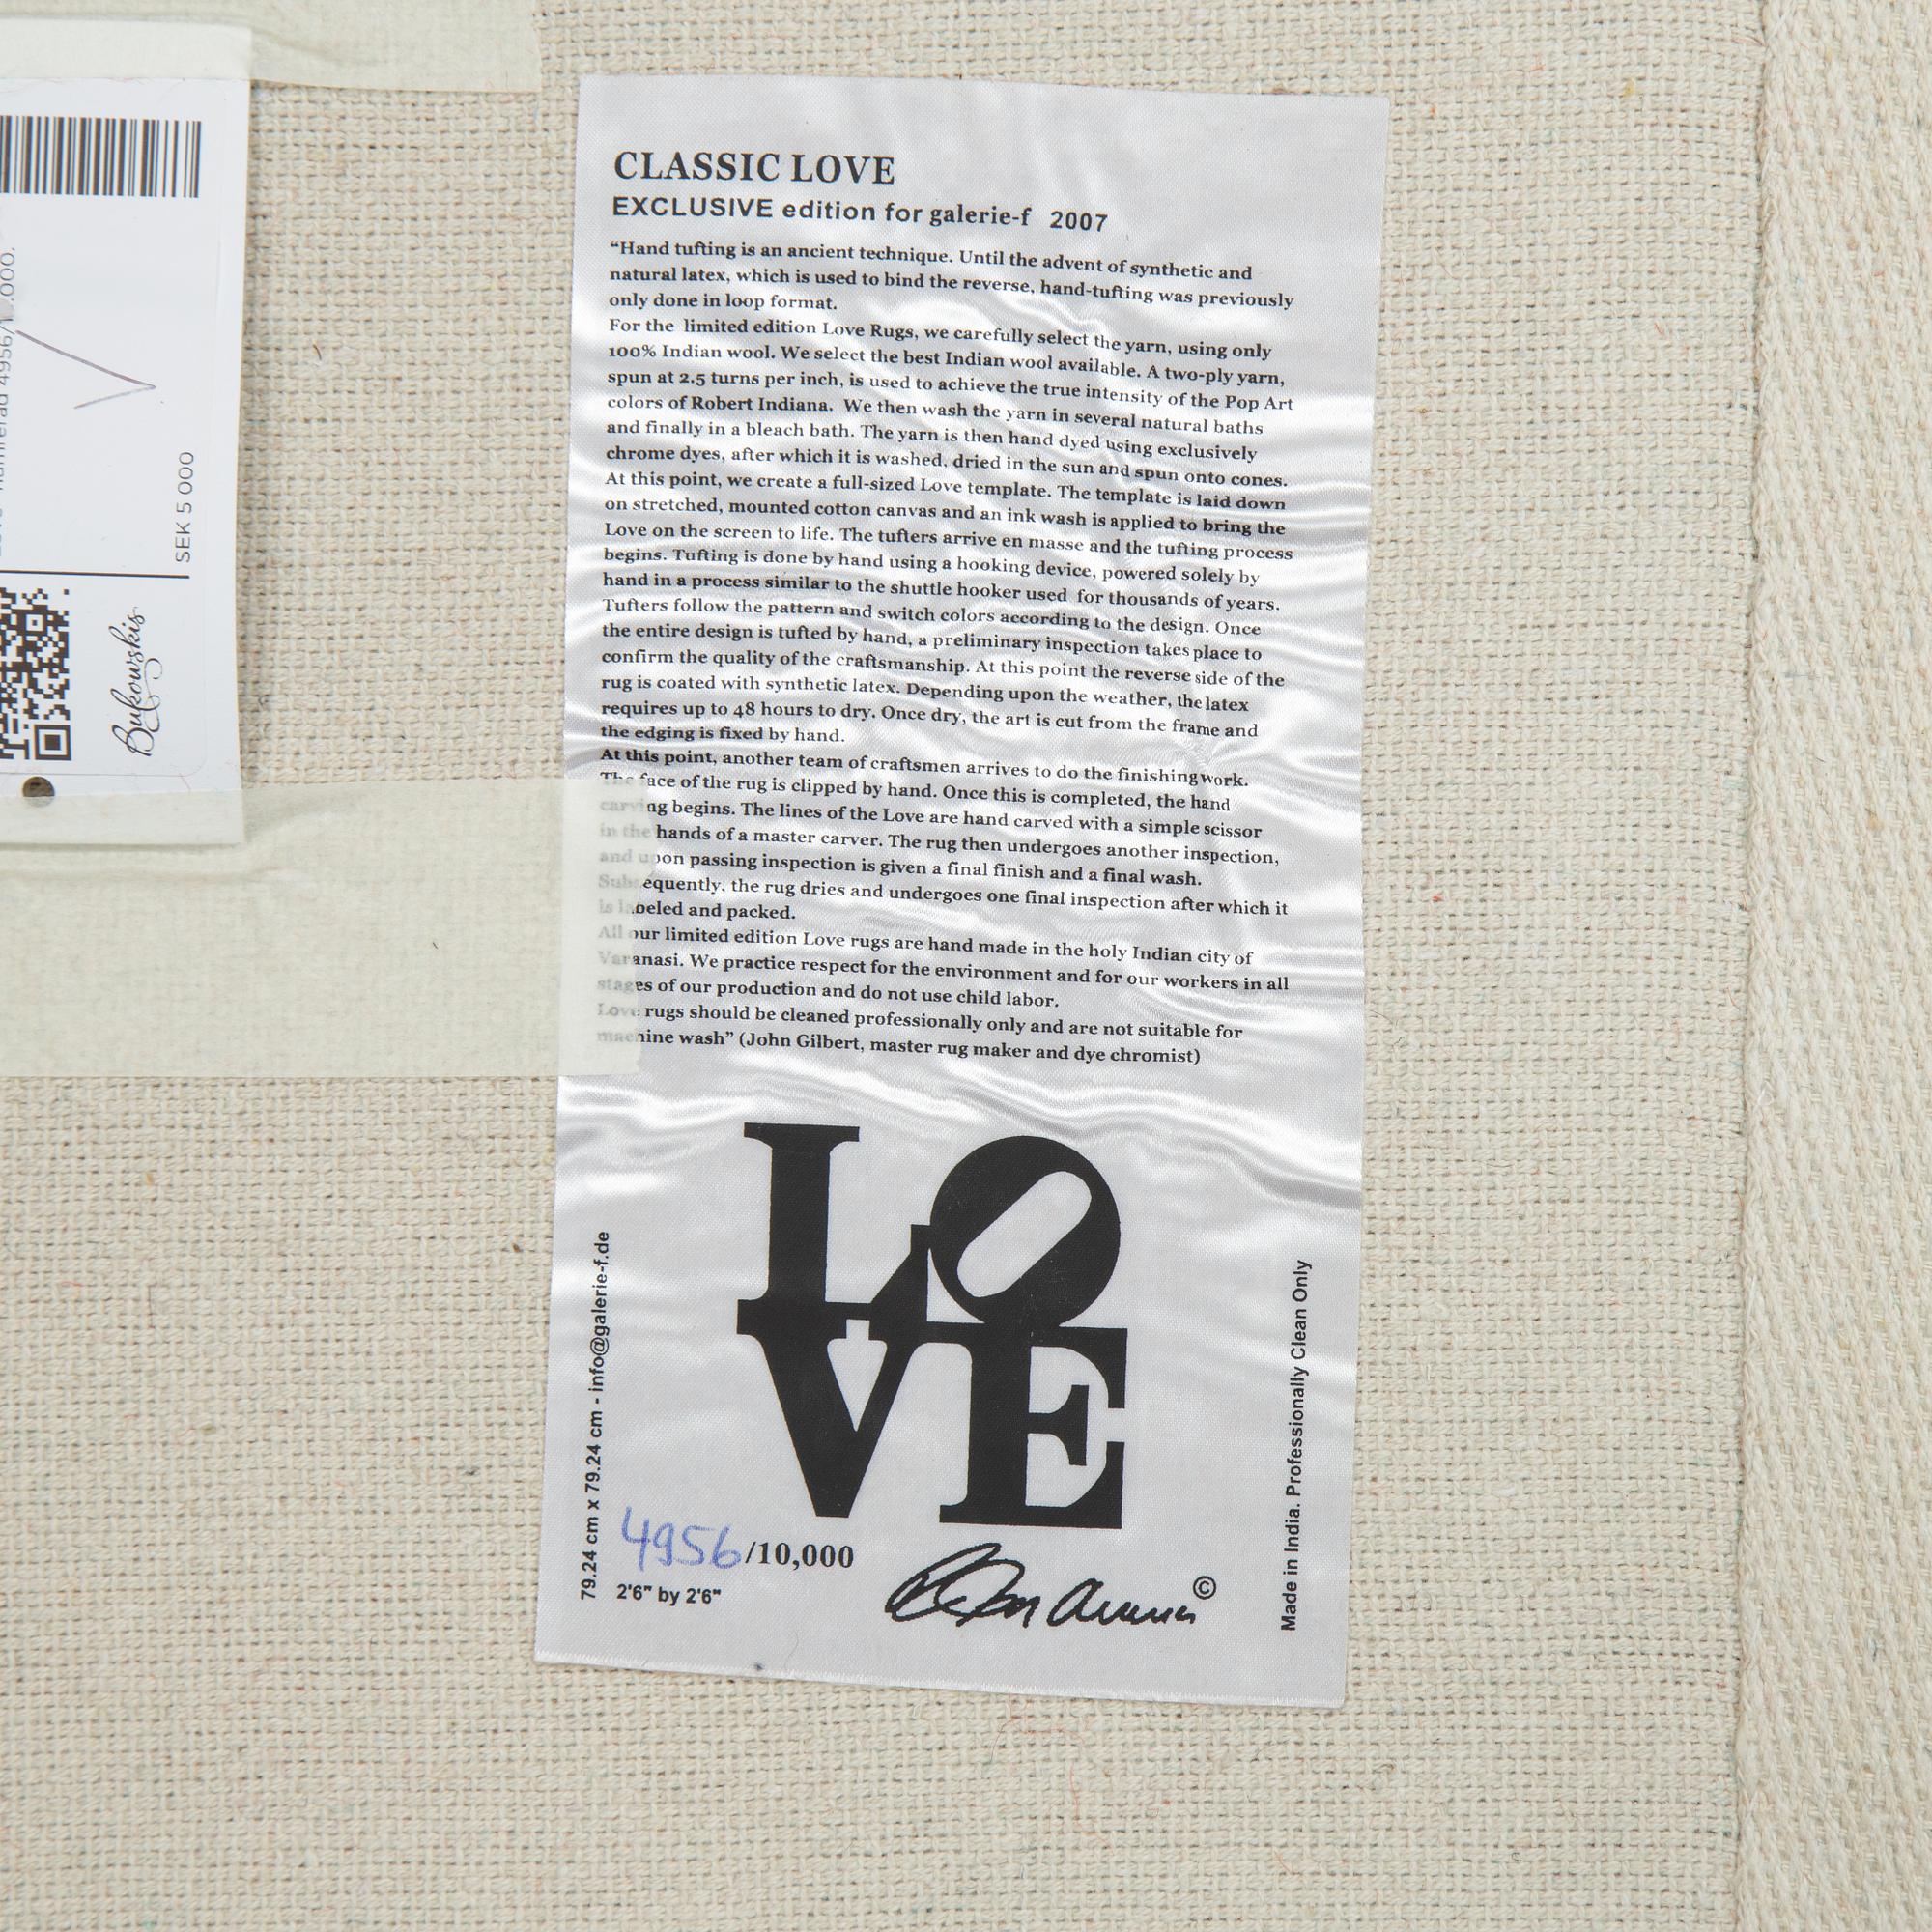 CLASSIC LOVE
EXCLUSIVE edition for galerie-f 2007
“Hand tufting is an ancient technique. Until the advent of synthetic and
natural latex, which is used to bind the reverse, hand-tufting was previously
only done in loop format.
For the limited edition Love Rugs, we carefully select the yarn, using only
100% Indian wool. We select the best Indian wool available. A two-ply yarn,
spun at 2.5 turns per inch, is used to achieve the true intensity of the Pop Art
colors of Robert Indiana. We then wash the yarn in several natural baths
and finally in a bleach bath. The yarn is then hand dyed using exclusively
chrome dyes, after which it is washed, dried in the sun and spun onto cones.
At this point, we create a full-sized Love template. The template is laid down
on stretched, mounted cotton canvas and an ink wash is applied to bring the
Love on the screen to life. The tufters arrive en masse and the tufting process
begins. Tufting is done by hand using a hooking device, powered solely by
hand in a process similar to the shuttle hooker used for thousands of years.
Tufters follow the pattern and switch colors according to the design. Once
the entire design is tufted by hand, a preliminary inspection takes place to
confirm the quality of the craftsmanship. At this point the reverse side of the
rug is coated with synthetic latex. Depending upon the weather, the latex
requires up to 48 hours to dry. Once dry, the art is cut from the frame and
the edging is fixed by hand.
At this point, another team of craftsmen arrives to do the finishing work.
The face of the rug is clipped by hand. Once this is completed, the hand
carving begins. The lines of the Love are hand carved with a simple scissor
in the hands of a master carver. The rug then undergoes another inspection,
and upon passing inspection is given a final finish and a final wash.
Subsequently, the rug dries and undergoes one final inspection after which it
is labeled and packed.
All our limited edition Love rugs are hand made in the holy Indian city of
Varanasi. We practice respect for the environment and for our workers in all
stages of our production and do not use child labor.
Love rugs should be cleaned professionally only and are not suitable for
machine wash” (John Gilbert, master rug maker and dye chromist)
LO
VE
4956/10,000
2'6" by 2'6"
©
79.24 cm x 79.24 cm - info@galerie-f.de
Made in India. Professionally Clean Only
numrerad 4956/1..000.
SEK 5 000
Bukowskis